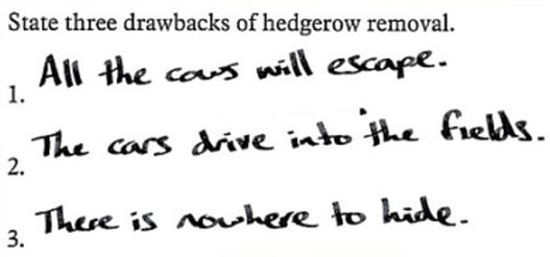 State three drawbacks of hedgerow removal.
1. All the cows will escape.
2. The cars drive into the fields.
3. There is nowhere to hide.